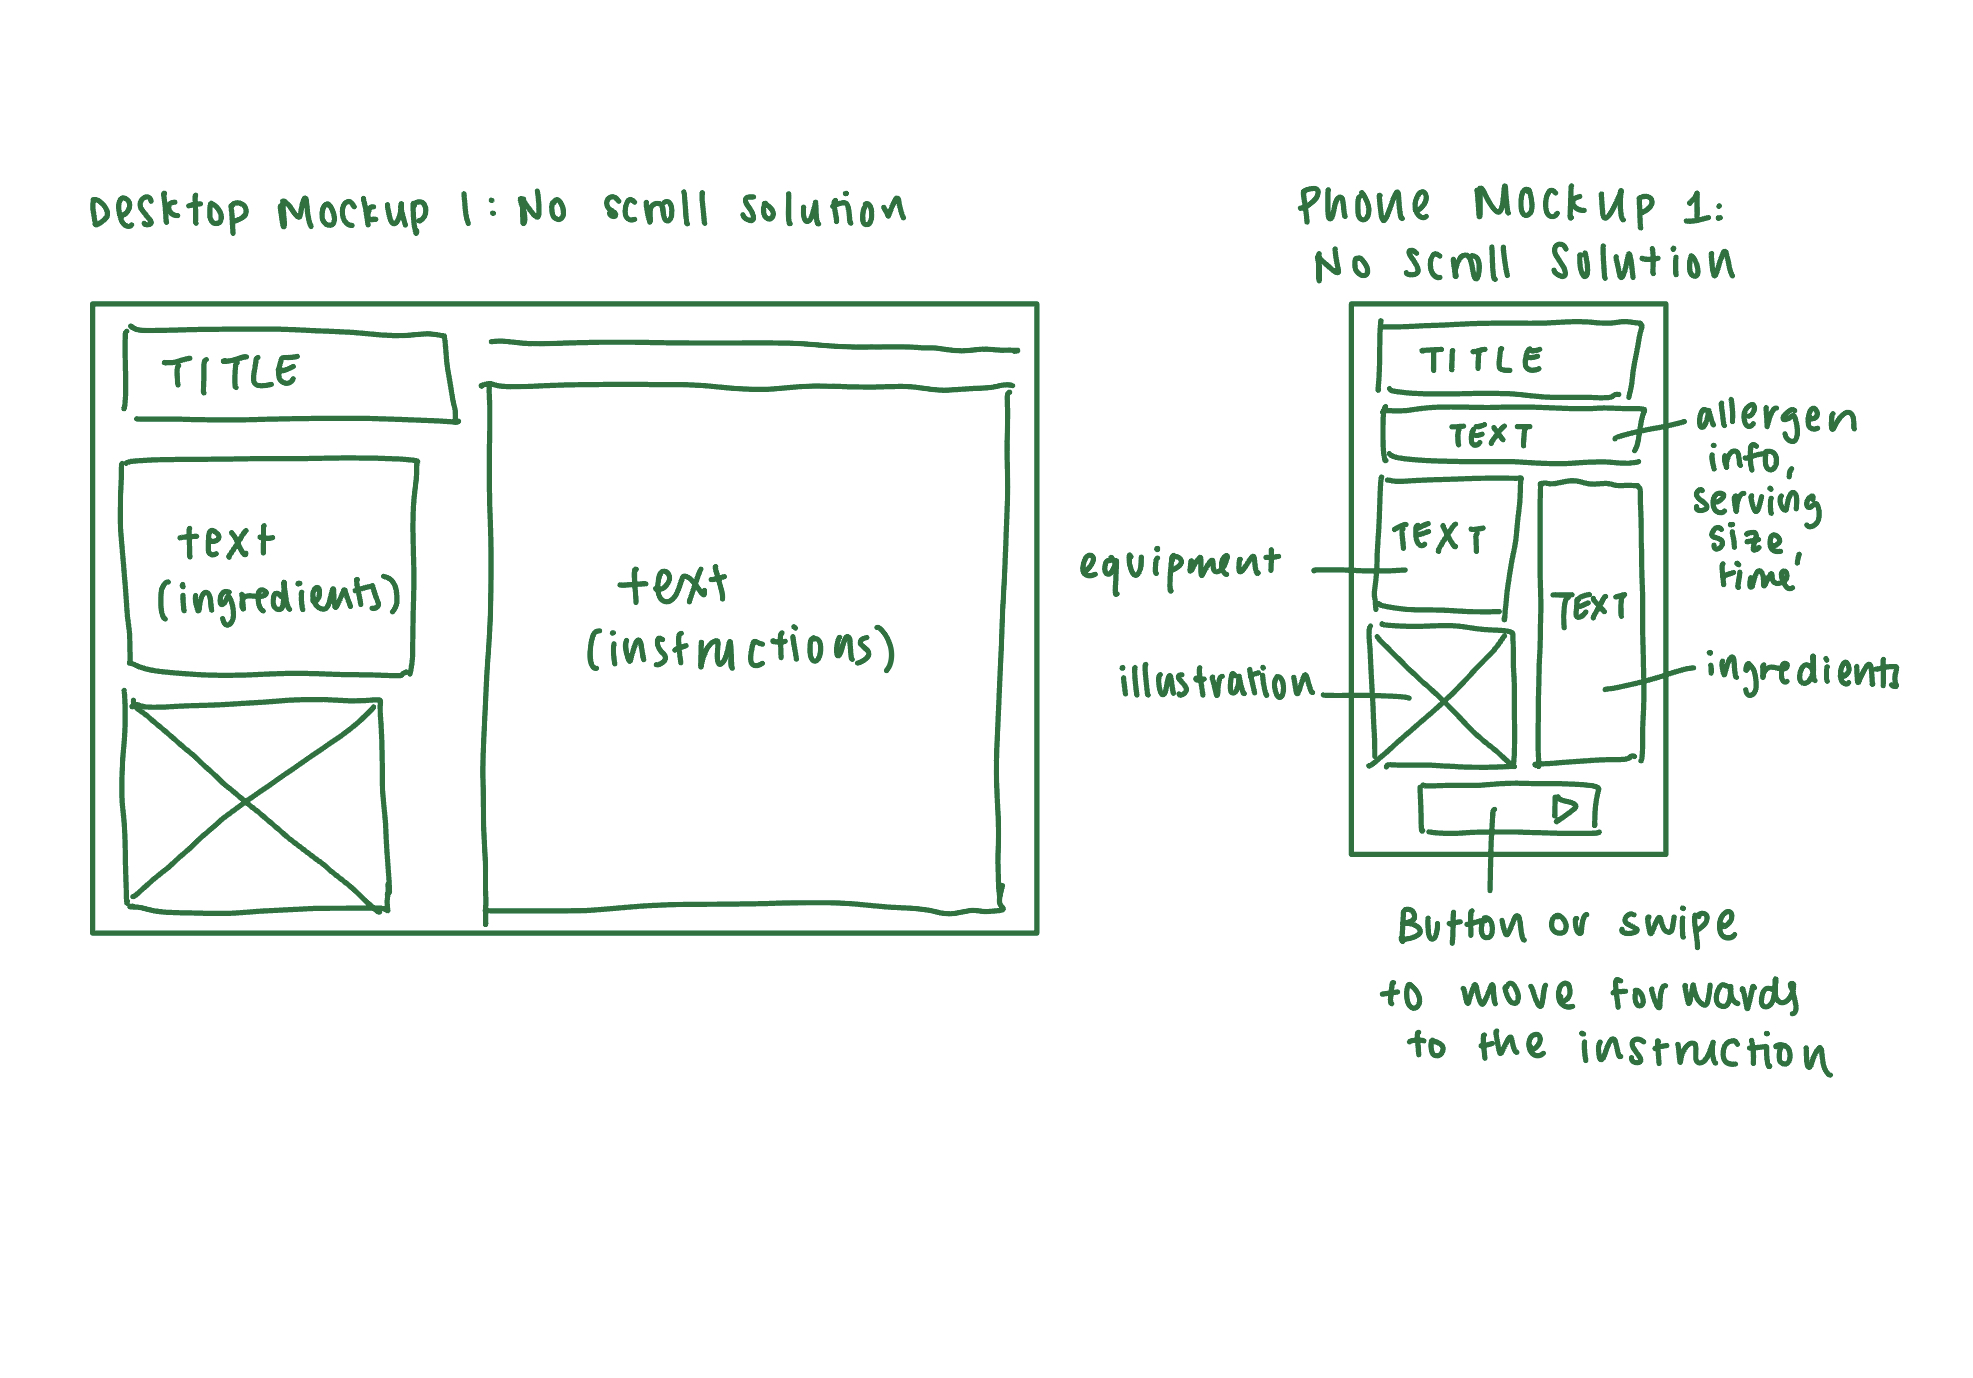 Desktop Mockup 1: No scroll solution
TITLE
text
(ingredients)
text
(instructions)
Phone Mockup 1:
No scroll Solution
TITLE
TEXT
allergen
info,
serving
size,
time
TEXT
equipment
TEXT
illustration
ingredients
Button or swipe
to move forwards
to the instruction